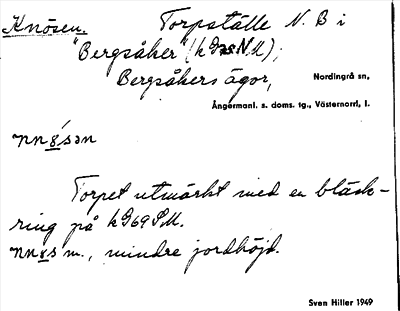 Knösen. Torpställe N. B i
"Bergsåker" (k G NM),
Bergsåkers ägor,
Nordingrå sn,
Ångermanl. s. doms. tg., Västernorrl, l.
Torpet utmärkt med en bläck-
ring på k G69 SM.
m., mindre jordhöjd.
Sven Hiller 1949